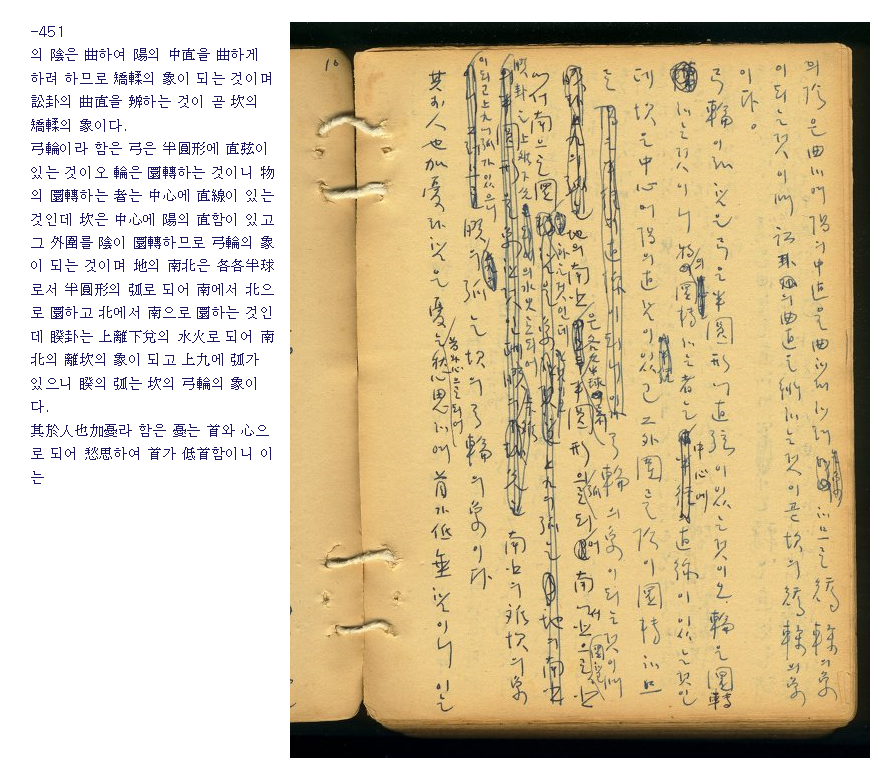 -451
의 陰은 曲하여 陽의 中直을 曲하게
하려 하므로 矯輮의 象이 되는 것이며
訟卦의 曲直을 辨하는 것이 곧 坎의
矯輮의 象이다.
弓輪이라 함은 弓은 半圓形에 直弦이
있는 것이오 輪은 圜轉하는 것이니 物
의 圜轉하는 者는 中心에 直線이 있는
것인데 坎은 中心에 陽의 直함이 있고
그 外圍를 陰이 圜轉하므로 弓輪의 象
이 되는 것이며 地의 南北은 各各半球
로서 半圓形의 弧로 되어 南에서 北으
로 圜하고 北에서 南으로 圜하는 것인
데 睽卦는 上離下兌의 水火로 되어 南
北의 離坎의 象이 되고 上九에 弧가
있으니 睽의 弧는 坎의 弓輪의 象이
다.
其於人也加憂라 함은 憂는 首와 心으
로 되어 愁思하여 首가 低首함이니 이
는
의 陰은 曲하여 陽의 中直을 曲하게 하려 하므로 矯輮의 象
이 되는 것이며 訟卦의 曲直을 辨하는 것이 곧 坎의 矯輮의 象
이다。
弓輪이라 함은 弓은 半圓形에 直弦이 있는 것이오 輪은 圜轉
하는 것이니 物의 圜轉하는 者는 中心에 直線이 있는 것인
데 坎은 中心에 陽의 直함이 있고 그 外圍를 陰이 圜轉하므
로 弓輪의 象이 되는 것이며
地의 南北은 各各半球로서 半圓形의 弧로 되어 南에서 北으로
圜하고 北에서 南으로 圜하는 것인데
睽卦는 上離下兌의 水火로 되어 南北의 離坎의 象
이 되고 上九에 弧가 있으니 睽의 弧는 坎의 弓輪의 象이다
其於人也加憂라 함은 憂는 首와 心으로 되어 愁思하여 首가 低垂함이니 이는
10